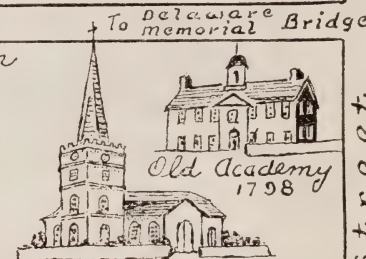 To Delaware
Memorial Bridge
Old Academy
1798
street